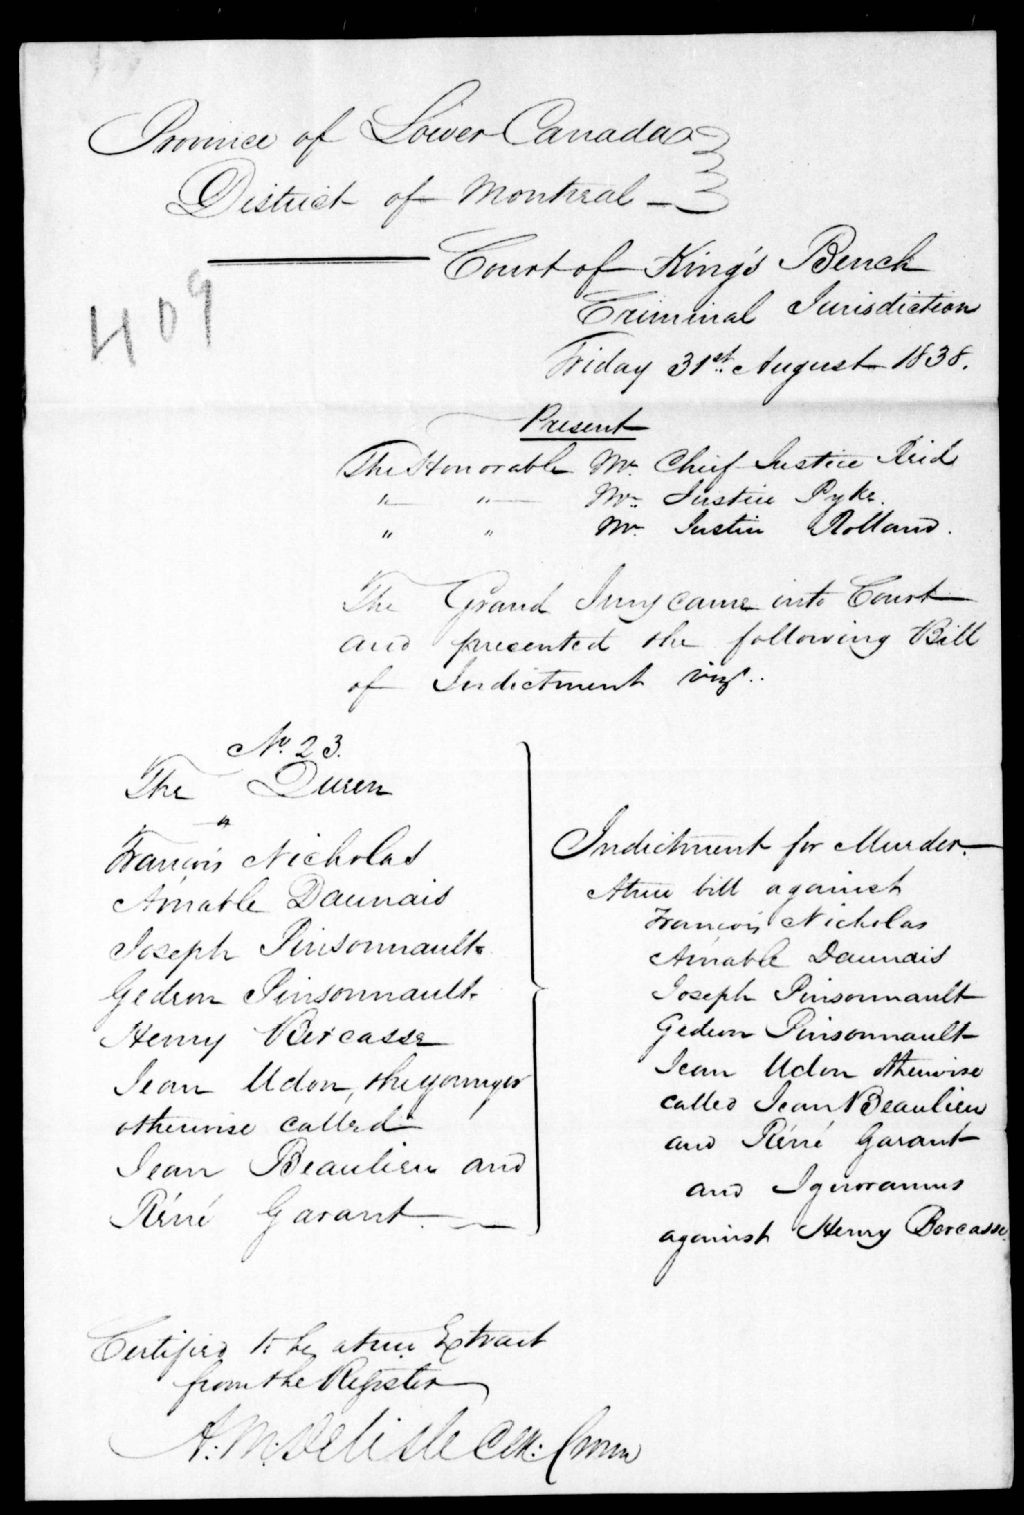 Province of Lower Canada
District of Montreal
Court of King's Bench
Criminal Jurisdiction
409
Friday 31st. August 1838.
Present
The Honorable Mr. Chief Justice Reid
" " Mr. Justice Pyke.
" " Mr. Justice Rolland.
The Grand Jury came into Court
and presented the following Bill
of Indictment vizt..
No. 23.
The Queen
"
François Nicholas
Amable Daunais
Joseph Pinsonnault
Gedeon Pinsonnault
Henry Bercasse
Jean Udon, the younger
otherwise called
Jean Beaulieu and
Réné Garant.
Indictment for Murder.
A true bill against
François Nicholas
Amable Daunais
Joseph Pinsonnault
Gedeon Pinsonnault
Jean Udon otherwise
called Jean Beaulieu
and Réné Garant
and Ignoramus
against Henry Bercasse
Certified to be a true Extract
from the Register
A. M. Delisle Clk: Crown